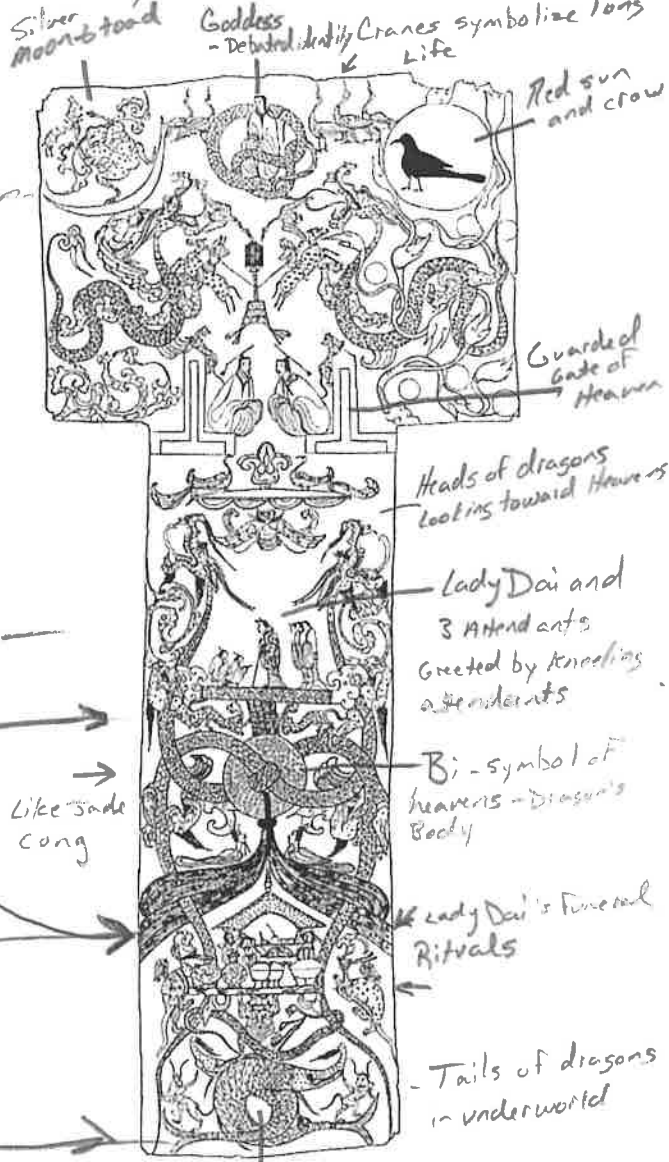 Silver
moon & toad
Goddess
- Debated identity
Cranes symbolize long
Life
Red sun
and crow
Guarded
Gate of
Heaven
Heads of dragons
Looking toward Heavens
Lady Dai and
3 Attendants
Greeted by kneeling
attendants
Bi - symbol of
heavens - Dragon's
Body
Like Jade
Cong
Lady Dai's Funeral
Rituals
- Tails of dragons
in underworld